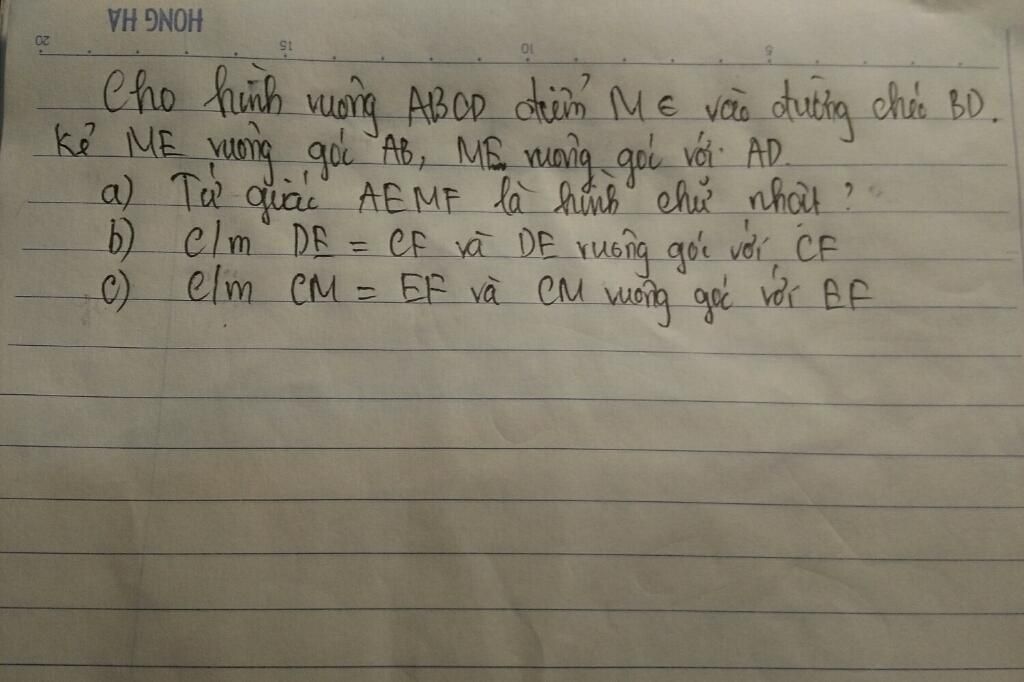 HONG HA
20 15 10 5
Cho hình vuông ABCD điểm M ∈ vào đường chéo BD.
Kẻ ME vuông góc AB, ME vuông góc với AD.
a) Tứ giác AEMF là hình chữ nhật ?
b) C/m DE = CF và DE vuông góc với CF
c) C/m CM = EF và CM vuông góc với EF